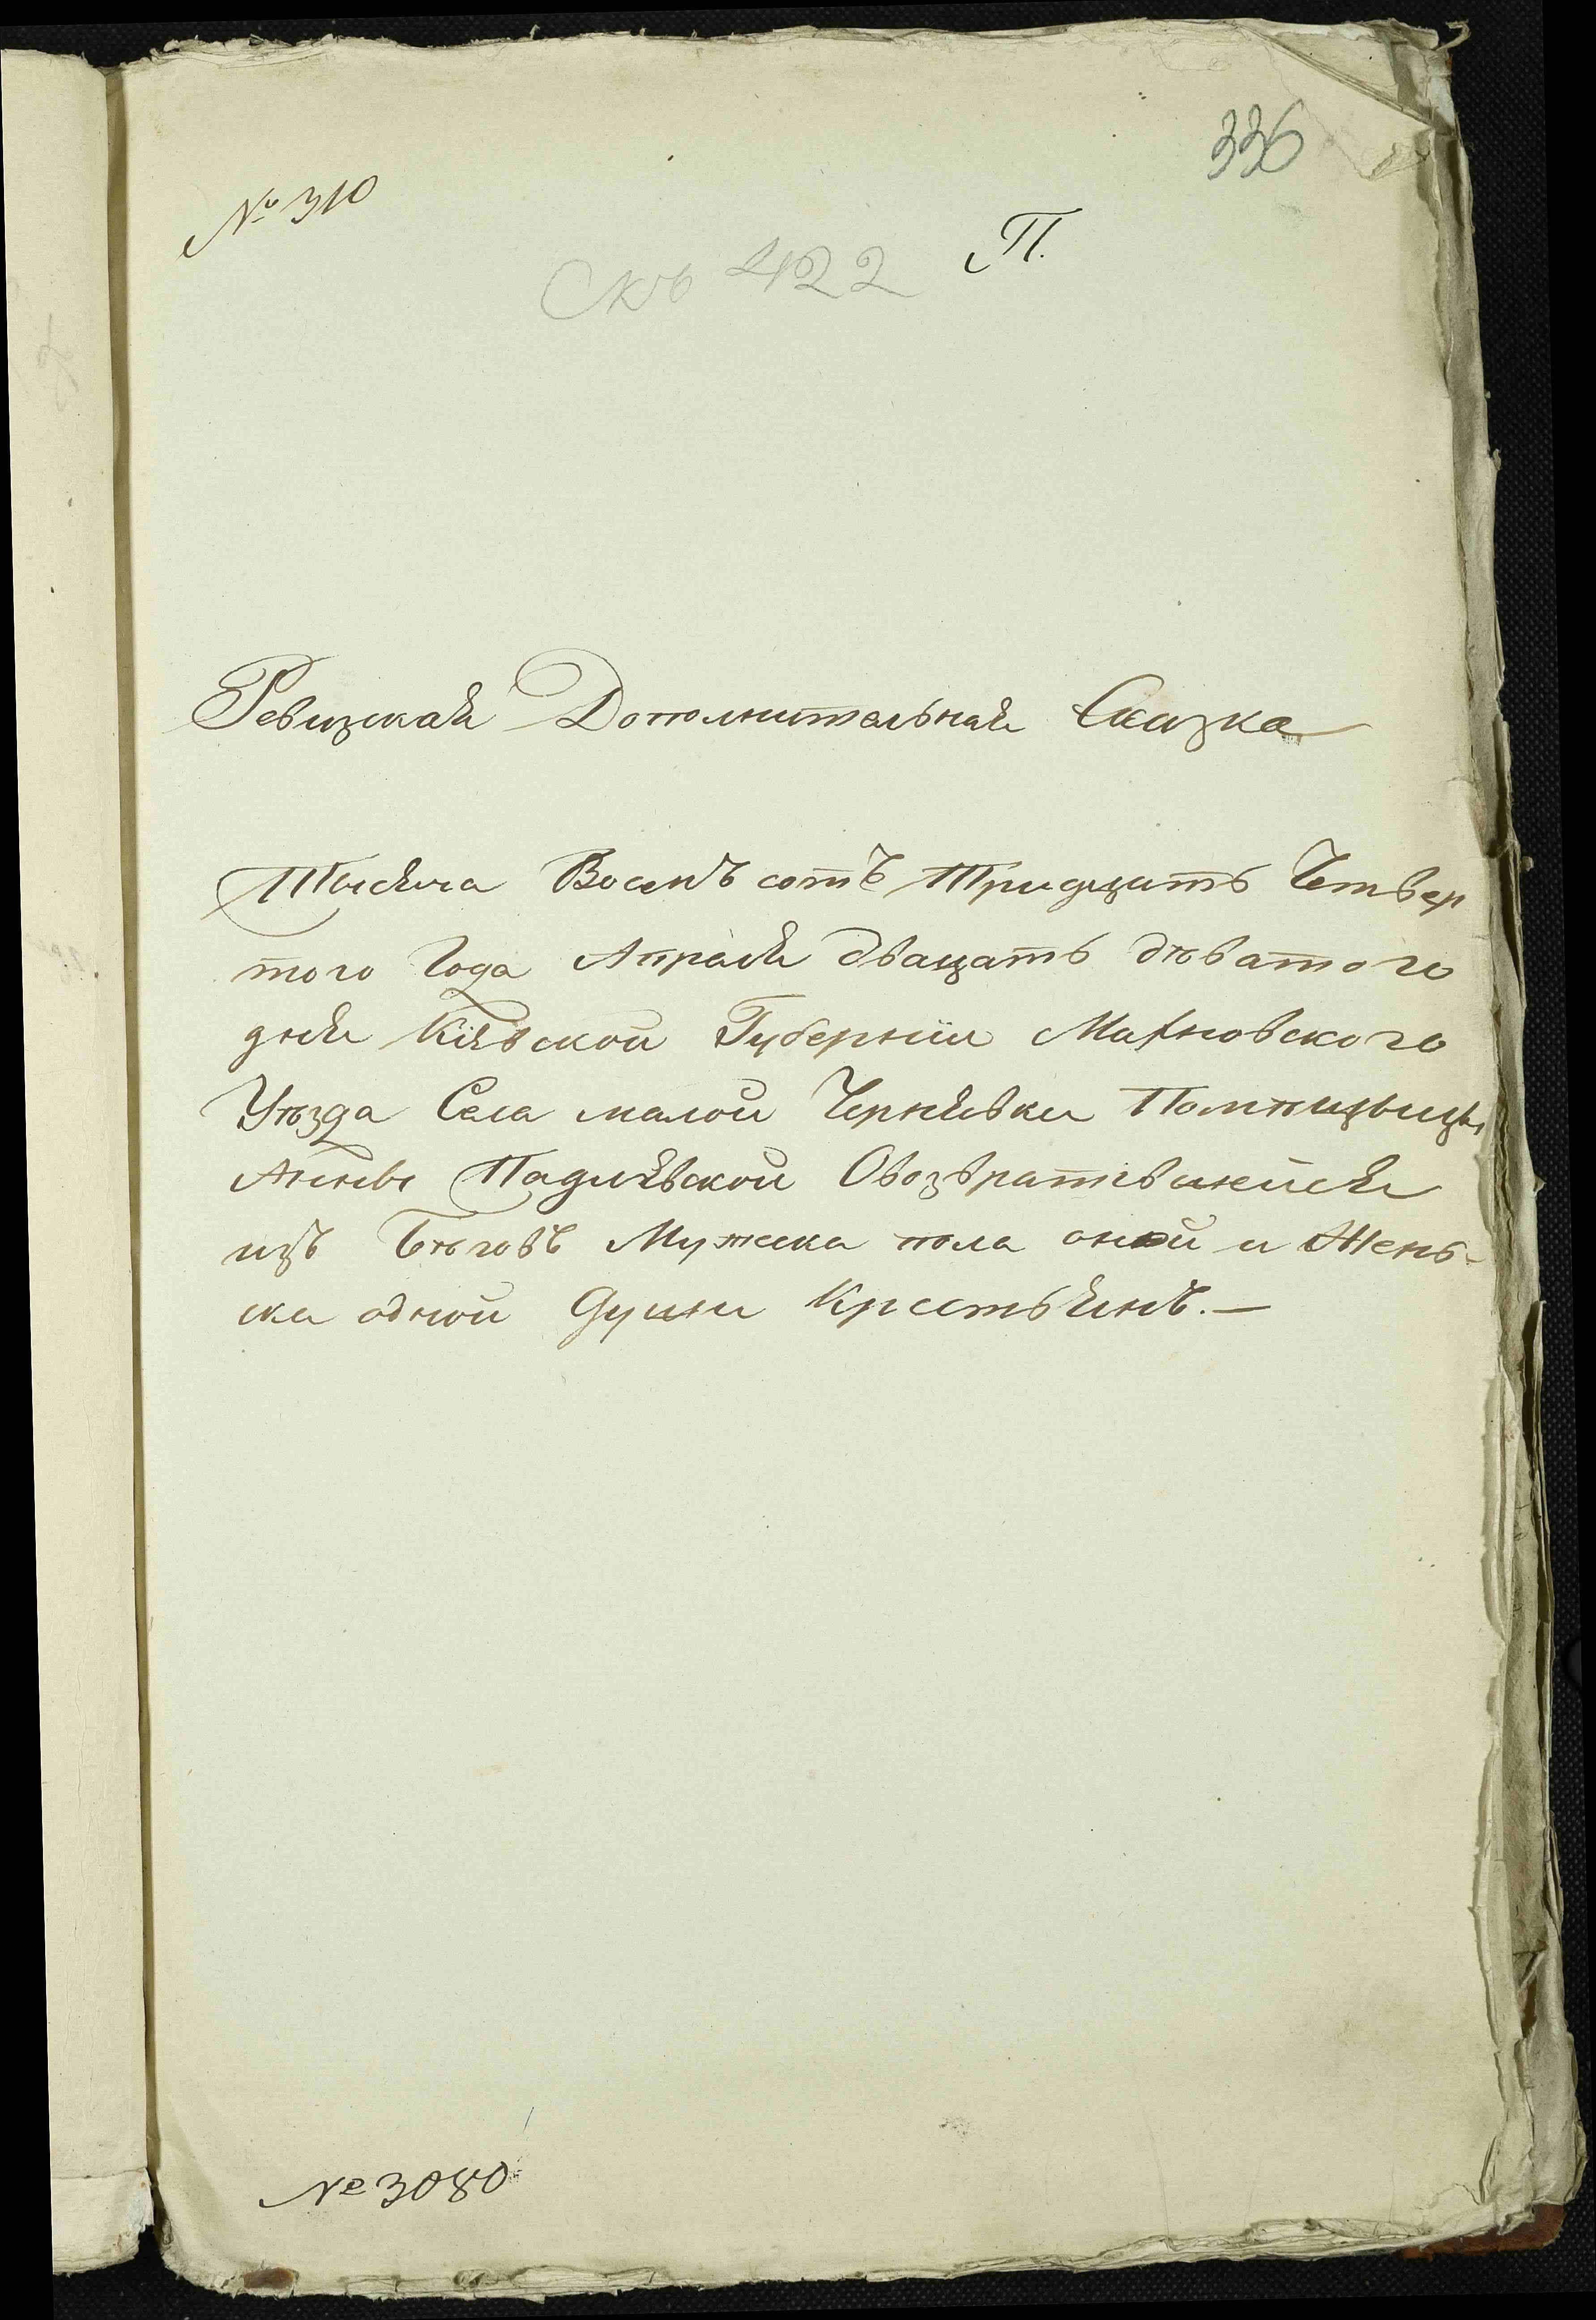 336
№ 310
П.
Скъ 422
Ревизская Дополнительная Сказка
Тысяча Восемъ сотъ Тридцать Четвер
того Года Апреля двацать деватого
дня Кіевской Губерніи Махновского
Уѣзда Села малой Чернявки Помѣщыцы
Анны Падлѣвской Овозвратившейся
изъ Бѣговъ Мужеска пола оной и Жень-
ска одной Души Крестьянъ.—
№ 3080